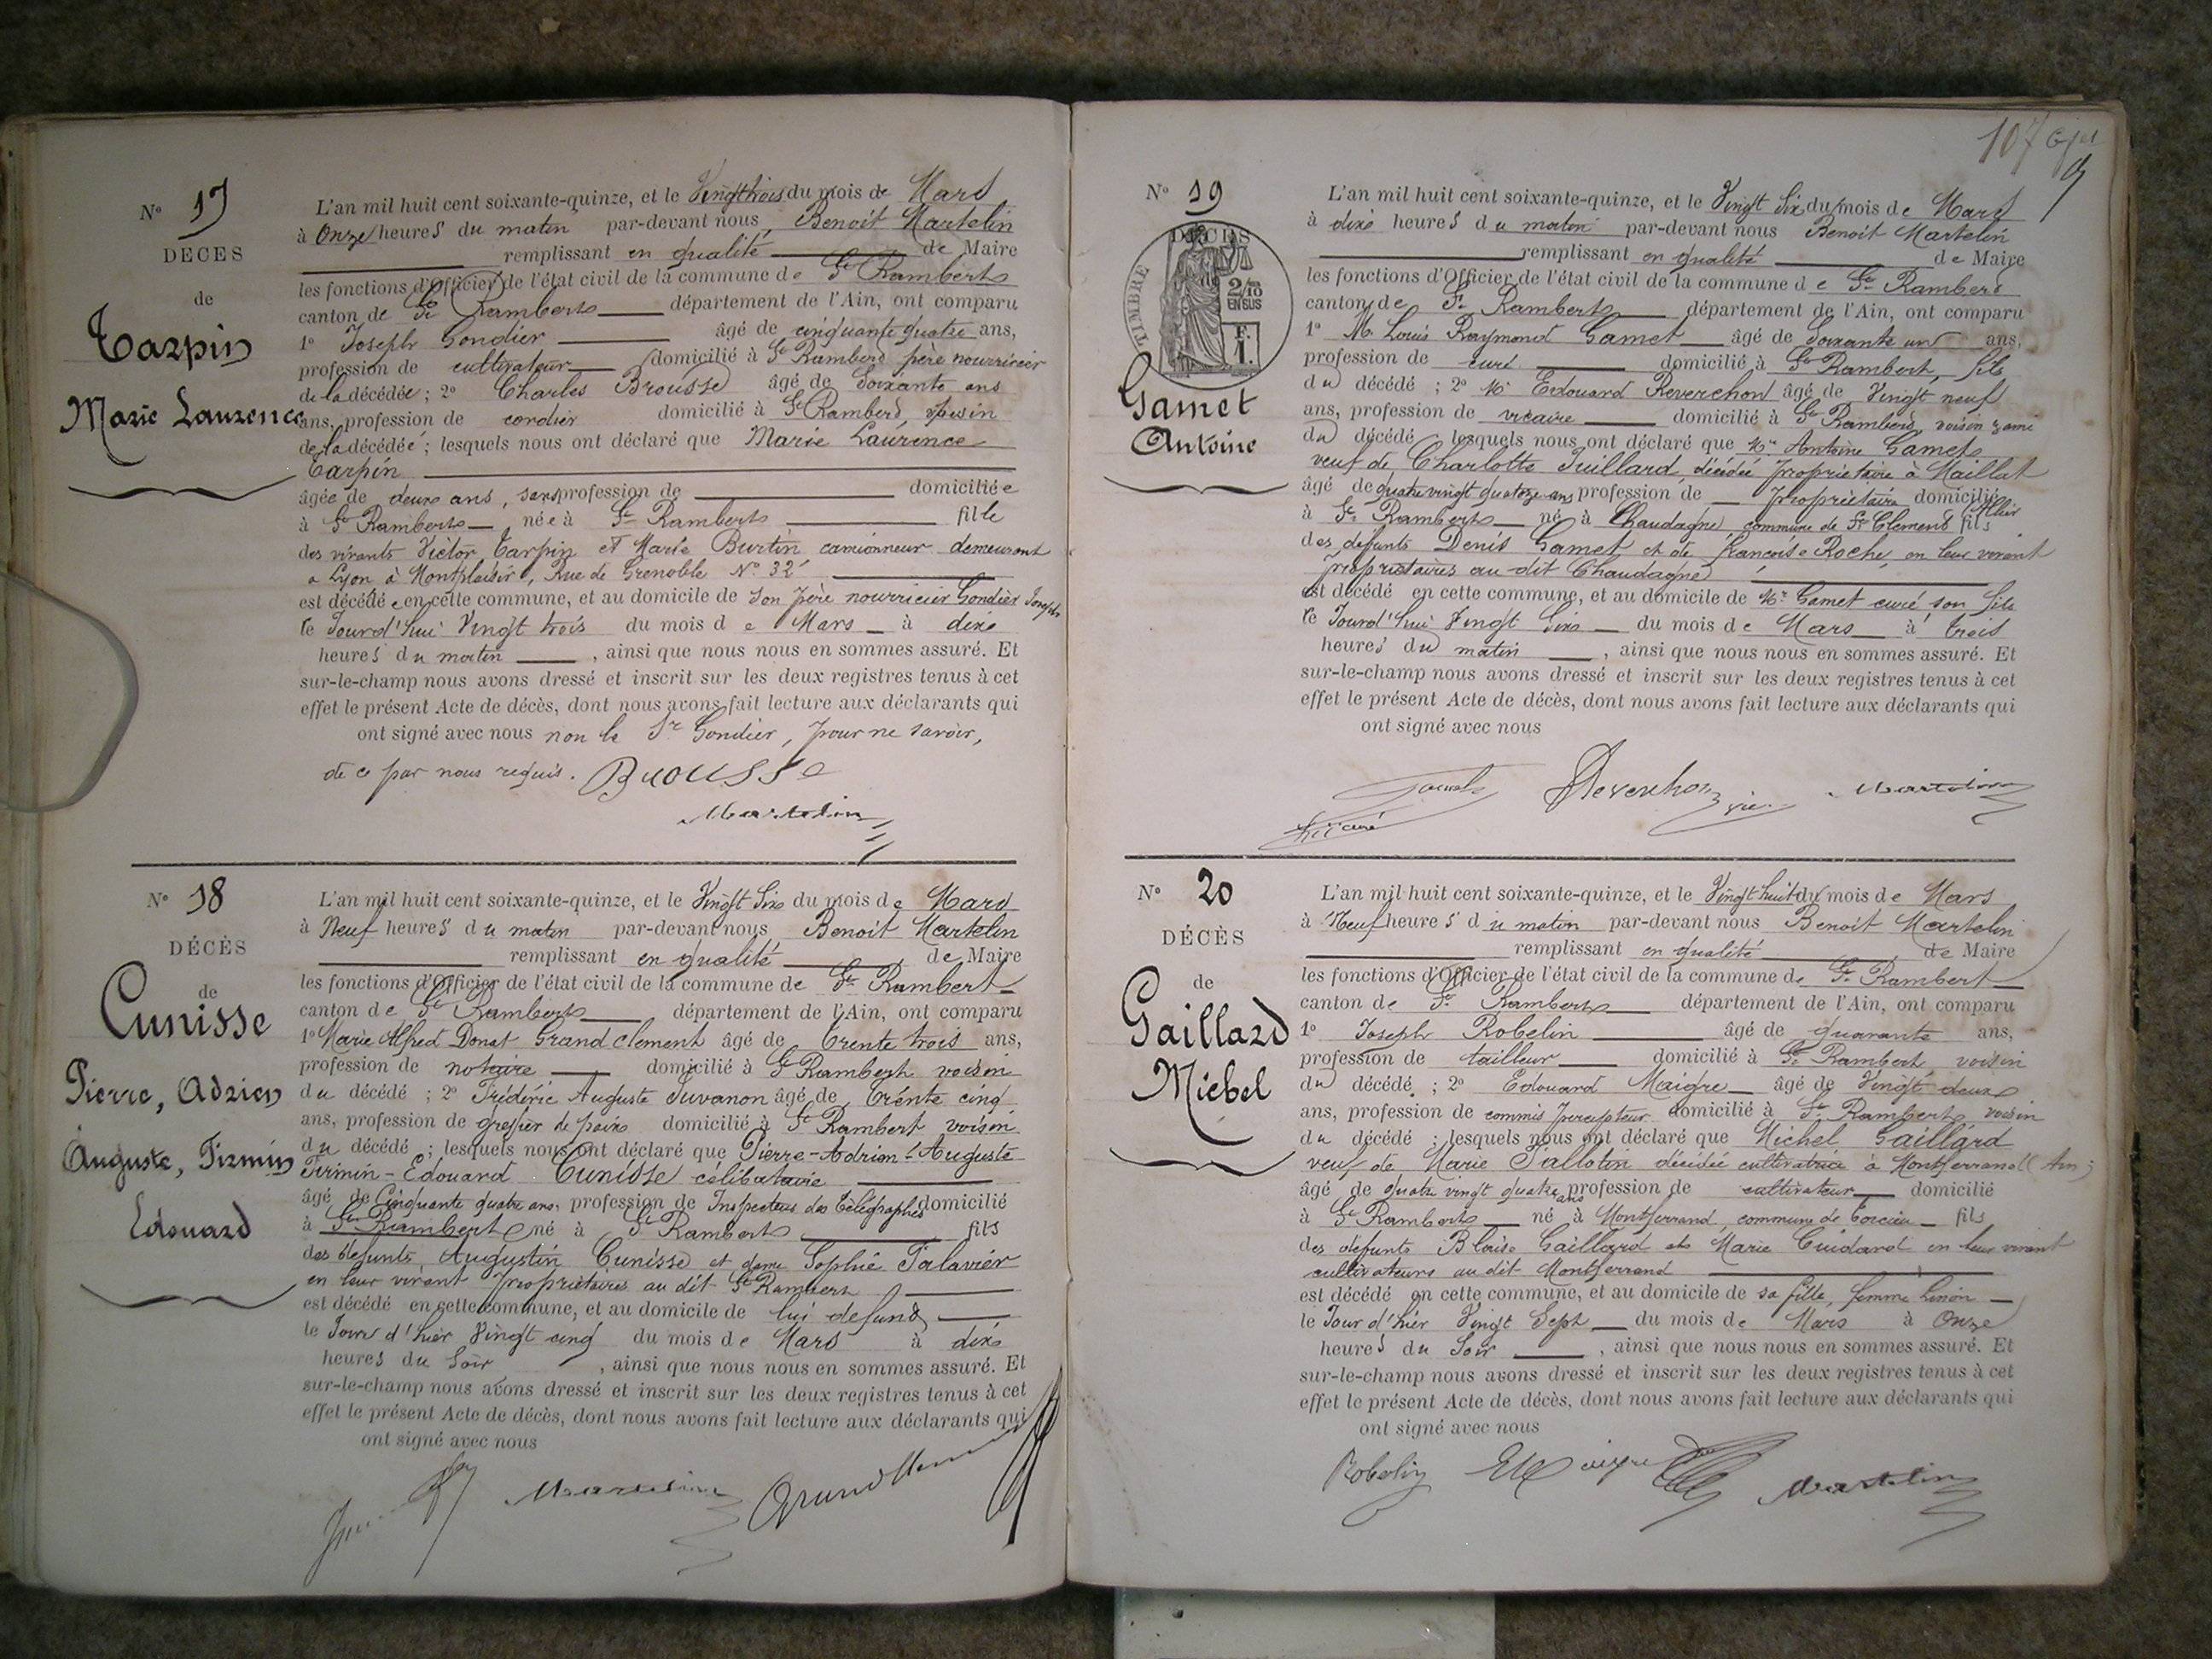 N° 17
DÉCÈS
de
Tarpin
Marie Laurence
L'an mil huit cent soixante-quinze, et le Vingt trois du mois de Mars
à Onze heures du matin par-devant nous Benoit Martelin
remplissant en qualité de Maire
les fonctions d'Officier de l'état civil de la commune de St Rambert
canton de St Rambert département de l'Ain, ont comparu
1° Joseph Gondier âgé de cinquante quatre ans,
profession de cultivateur domicilié à St Rambert père nourricier
de la décédée ; 2° Charles Brousse âgé de Soixante ans
ans, profession de cordier domicilié à St Rambert voisin
de la décédée ; lesquels nous ont déclaré que Marie Laurence
Tarpin
âgée de deux ans, sans profession de domiciliée
à St Rambert née à St Rambert fille
des vivants Victor Tarpin et Marie Burtin camionneur demeurant
a Lyon à Montplaisir, Rue de Grenoble N° 32
est décédée en cette commune, et au domicile de son père nourricier Gondier Joseph
le Jourd'hui Vingt trois du mois de Mars à dix
heures du matin , ainsi que nous nous en sommes assuré. Et
sur-le-champ nous avons dressé et inscrit sur les deux registres tenus à cet
effet le présent Acte de décès, dont nous avons fait lecture aux déclarants qui
ont signé avec nous non le Sr Gondier, pour ne savoir,
de ce par nous requis. Brousse
Martelin
N° 18
DÉCÈS
de
Cunisse
Pierre, Adrien
Auguste, Firmin
Edouard
L'an mil huit cent soixante-quinze, et le Vingt Six du mois de Mars
à Neuf heures du matin par-devant nous Benoit Martelin
remplissant en qualité de Maire
les fonctions d'Officier de l'état civil de la commune de St Rambert
canton de St Rambert département de l'Ain, ont comparu
1° Marie Alfred Donat Grandclement âgé de Trente trois ans,
profession de notaire domicilié à St Rambert voisin
du décédé ; 2° Frédéric Auguste Juvanon âgé de Trente cinq
ans, profession de greffier de paix domicilié à St Rambert voisin
du décédé ; lesquels nous ont déclaré que Pierre-Adrien-Auguste
Firmin-Edouard Cunisse célibataire
âgé de Cinquante quatre ans, profession de Inspecteur des Télégraphes domicilié
à St Rambert né à St Rambert fils
des défunts Augustin Cunisse et dame Sophie Palavier
en leur vivant propriétaires au dit St Rambert
est décédé en cette commune, et au domicile de lui défunt
le Jour d'hier Vingt cinq du mois de Mars à dix
heures du Soir , ainsi que nous nous en sommes assuré. Et
sur-le-champ nous avons dressé et inscrit sur les deux registres tenus à cet
effet le présent Acte de décès, dont nous avons fait lecture aux déclarants qui
ont signé avec nous
Martelin
107
N° 19
DÉCÈS
TIMBRE
2/10
EN SUS
F.
1.
Gamet
Antoine
L'an mil huit cent soixante-quinze, et le Vingt Six du mois de Mars
à dix heures du matin par-devant nous Benoit Martelin
remplissant en qualité de Maire
les fonctions d'Officier de l'état civil de la commune de St Rambert
canton de St Rambert département de l'Ain, ont comparu
1° Mr Louis Raymond Gamet âgé de Soixante un ans,
profession de curé domicilié à St Rambert, fils
du décédé ; 2° Mr Edouard Reverchon âgé de Vingt neuf
ans, profession de vicaire domicilié à St Rambert voisin & ami
du décédé lesquels nous ont déclaré que Mr Antoine Gamet
veuf de Charlotte Juillard, décédée propriétaire à Maillat
âgé de quatre vingt quatorze ans profession de propriétaire domicilié
à St Rambert né à Chaudagne, commune de St Clement fils
des défunts Denis Gamet et de françoise Roche, en leur vivant
propriétaires au dit Chaudagne
est décédé en cette commune, et au domicile de Mr Gamet curé son fils
le Jourd'hui Vingt Six du mois de Mars à trois
heures du matin , ainsi que nous nous en sommes assuré. Et
sur-le-champ nous avons dressé et inscrit sur les deux registres tenus à cet
effet le présent Acte de décès, dont nous avons fait lecture aux déclarants qui
ont signé avec nous
Gamet Reverchon vic. Martelin
curé
N° 20
DÉCÈS
de
Gaillard
Michel
L'an mil huit cent soixante-quinze, et le Vingt huit du mois de Mars
à Neuf heures du matin par-devant nous Benoit Martelin
remplissant en qualité de Maire
les fonctions d'Officier de l'état civil de la commune de St Rambert
canton de St Rambert département de l'Ain, ont comparu
1° Joseph Robelin âgé de quarante ans,
profession de tailleur domicilié à St Rambert, voisin
du décédé ; 2° Edouard Maigre âgé de Vingt deux
ans, profession de commis percepteur domicilié à St Rambert, voisin
du décédé ; lesquels nous ont déclaré que Michel Gaillard
veuf de Marie Pallotin décédée cultivatrice à Montferrand (Ain)
âgé de quatre vingt quatre ans profession de cultivateur domicilié
à St Rambert né à Montferrand, commune de Torcieu fils
des défunts Blaise Gaillard et Marie Guidard en leur vivant
cultivateurs au dit Montferrand
est décédé en cette commune, et au domicile de sa fille, femme Linon
le Jour d'hier Vingt Sept du mois de Mars à Onze
heures du Soir , ainsi que nous nous en sommes assuré. Et
sur-le-champ nous avons dressé et inscrit sur les deux registres tenus à cet
effet le présent Acte de décès, dont nous avons fait lecture aux déclarants qui
ont signé avec nous
Robelin E Maigre Martelin